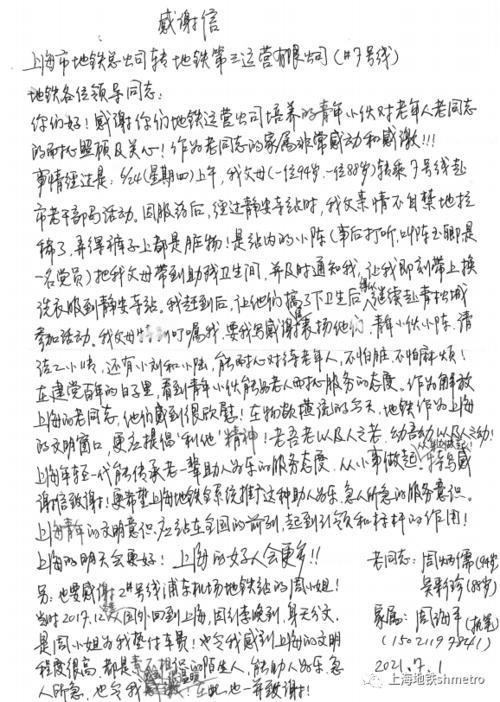 感谢信
上海市地铁总公司转地铁第三运营有限公司(#7号线)
地铁各位领导同志:
你们好!感谢你们地铁运营公司培养的青年小伙对老年人老同志
的耐心照顾及关心!作为老同志的家属非常感动和感激!!!
事情经过是:6/24(星期四)上午,我父母(一位94岁、一位88岁)转乘7号线赴
市老干部局活动。因服药后,经过静安寺站时,我父亲情不自禁地拉
稀了,弄得裤子上都是脏物!是站内的小陈(事后打听,叫陈玉卿是
一名党员)把我父母带到助残卫生间,并及时通知我,让我即刻带上换
洗衣服到静安寺站。我赶到后,让他们搞了下卫生后,继续赴青松城
参加活动。我父母叮嘱我,要我写感谢表扬他们,青年小伙小陈、请
洁工小味,还有小刘和小陆,能耐心对待老年人,不怕脏、不怕麻烦!
在建党百年的日子里,看到青年小伙能为老人耐心服务的态度。作为解放
上海的老同志,他们感到很欣慰!在物欲横流的今天,地铁作为上海
的文明窗口,更应提倡"利他"精神!老吾老以及人之老,幼吾幼以及人之幼!
上海年轻一代能传承老一辈助人为乐的服务态度,从小事做起,特写感
谢信致谢!更希望上海地铁全系统推广这种助人为乐、急人所急的服务意识。
上海青年的文明意识,应站在全国的前列,起到引领和标杆的作用!
上海的明天会更好!上海的好人会更多!!
另:也要感谢2#号线浦东机场地铁站的周小姐!
当时2017.12从国外回到上海,因行李晚到,身无分文,
是周小姐为我垫付车费!也令我感到上海的文明
程度很高,都是素不相识的陌生人,能助人为乐、急
人所急,也令我感激!在此,也一并致谢!
老同志:周炳儒(94岁)
吴新珍(88岁)
家属:周海平(执笔)
(15021197841)
2021.7.1
上海地铁shmetro